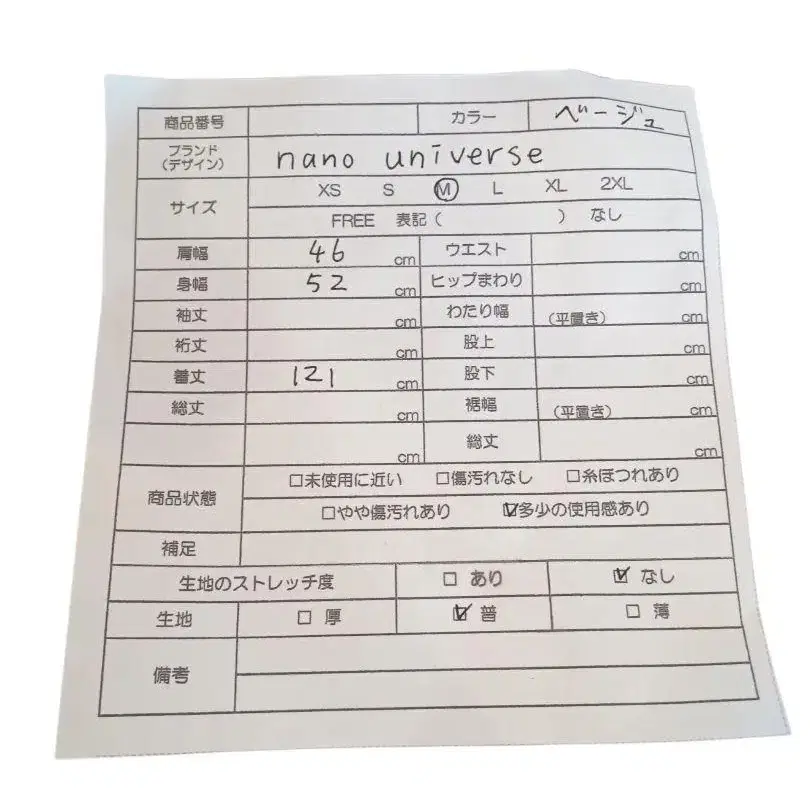 商品番号 カラー ベージュ
ブランド
(デザイン) nano universe
サイズ XS S M L XL 2XL
FREE 表記( ) なし
肩幅 46 cm ウエスト cm
身幅 52 cm ヒップまわり cm
袖丈 cm わたり幅 (平置き) cm
裄丈 cm 股上 cm
着丈 121 cm 股下 cm
総丈 cm 裾幅 (平置き) cm
cm 総丈 cm
商品状態 □未使用に近い □傷汚れなし □糸ほつれあり
□やや傷汚れあり ☑多少の使用感あり
補足
生地のストレッチ度 □ あり ☑ なし
生地 □ 厚 ☑ 普 □ 薄
備考